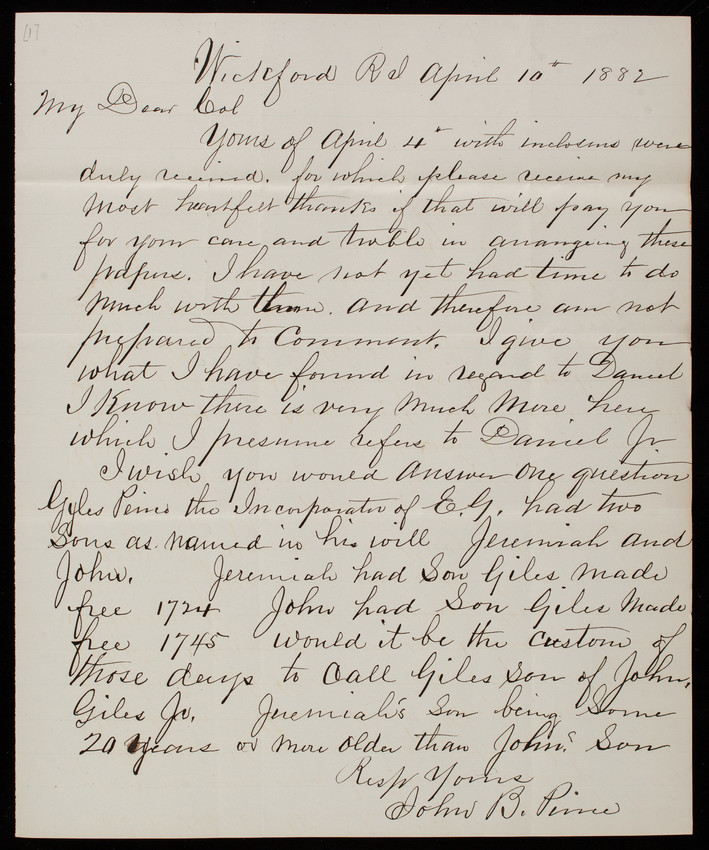 [1]
Wickford R I April 10th 1882
My Dear Col
Yours of April 4th with inclosures were
duly received. for which please receive my
most heartfelt thanks if that will pay you
for your care and truble in arrangeing these
papers. I have not yet had time to do
much with them. and therefore am not
prepared to comment. I give you
what I have found in regard to Daniel
I know there is very much more here
which I presume refers to Daniel Jr
I wish you would answer one question
Gyles Peirce the Incorporator of E.G. had two
Sons as named in his will Jeremiah and
John. Jeremiah had Son Giles made
free 1724 John had Son Giles made
free 1745 would it be the custom of
those days to call Giles son of John,
Giles Jr. Jeremiah's son being some
20 years or more older than John's Son
Resp Yours
John B. Peirce